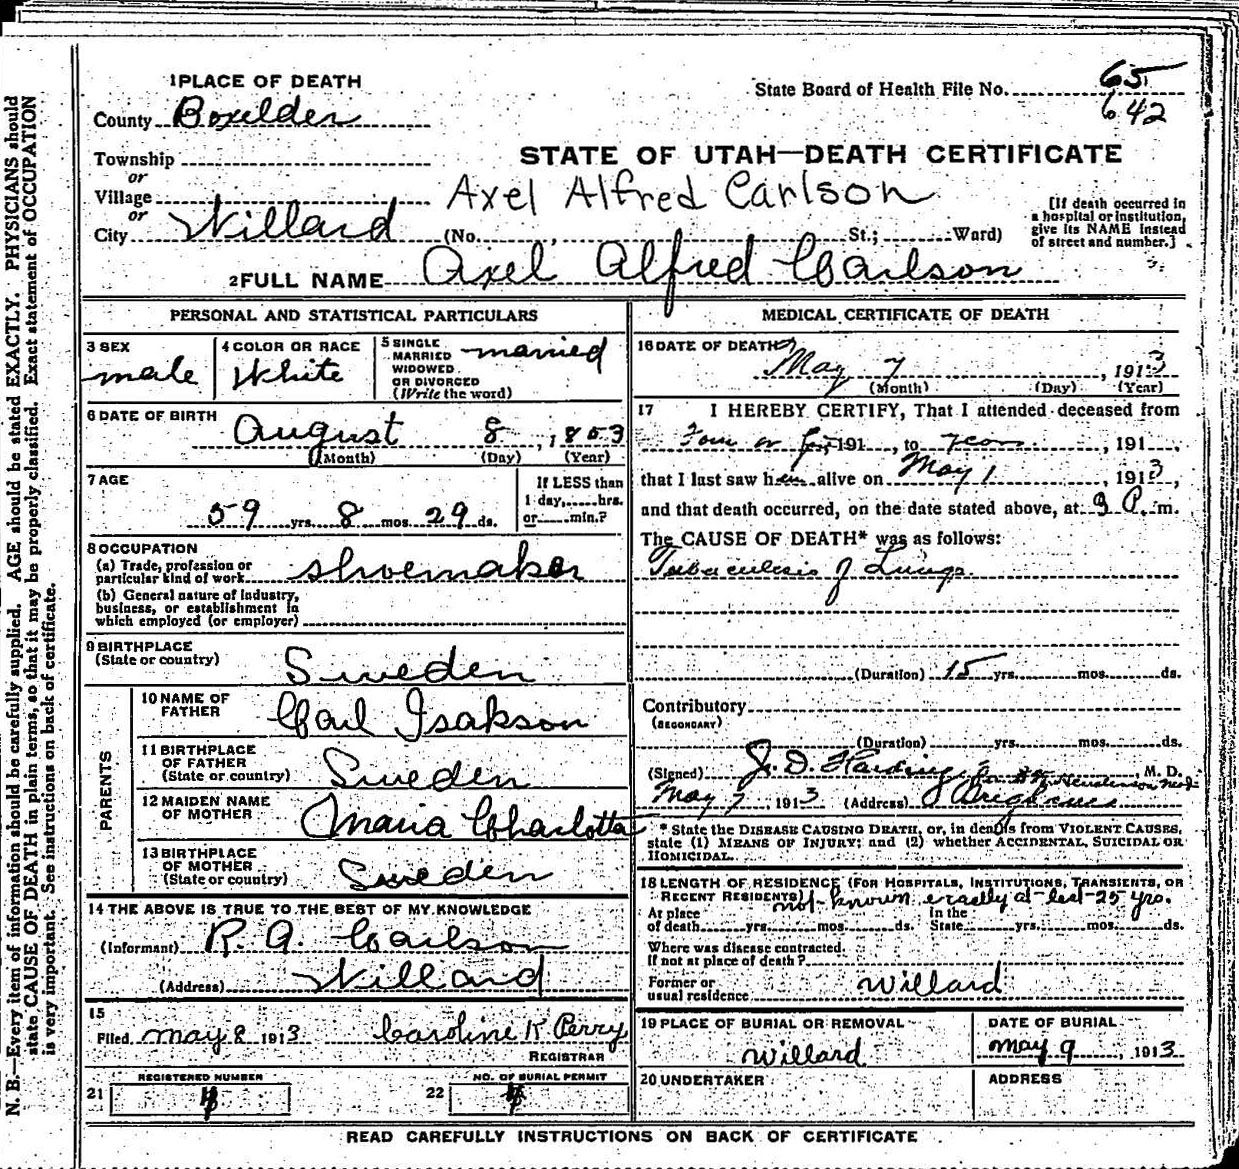 1 PLACE OF DEATH
State Board of Health File No. 65
642
County Boxelder
STATE OF UTAH—DEATH CERTIFICATE
Township
or
Village
Axel Alfred Carlson
or
City Willard (No. , St.; Ward)
[If death occurred in
a hospital or institution,
give its NAME instead
of street and number.]
2 FULL NAME Axel Alfred Carlson
PERSONAL AND STATISTICAL PARTICULARS
3 SEX
male
4 COLOR OR RACE
White
5 SINGLE
MARRIED
WIDOWED
OR DIVORCED
(Write the word)
married
6 DATE OF BIRTH
August 8, 1853
(Month) (Day) (Year)
7 AGE
59 yrs. 8 mos. 29 ds.
If LESS than
1 day, hrs.
or min.?
8 OCCUPATION
(a) Trade, profession or
particular kind of work shoemaker
(b) General nature of industry,
business, or establishment in
which employed (or employer)
9 BIRTHPLACE
(State or country)
Sweden
PARENTS
10 NAME OF
FATHER
Carl Isakson
11 BIRTHPLACE
OF FATHER
(State or country)
Sweden
12 MAIDEN NAME
OF MOTHER
Maria Charlotta
13 BIRTHPLACE
OF MOTHER
(State or country)
Sweden
14 THE ABOVE IS TRUE TO THE BEST OF MY KNOWLEDGE
(Informant) R. A. Carlson
(Address) Willard
15
Filed May 8 1913 Caroline K Perry
REGISTRAR
REGISTERED NUMBER
21
NO. OF BURIAL PERMIT
22
MEDICAL CERTIFICATE OF DEATH
16 DATE OF DEATH
May 7, 1913
(Month) (Day) (Year)
17 I HEREBY CERTIFY, That I attended deceased from
Four or 191 , to years. , 191 ,
that I last saw him alive on May 1, 1913,
and that death occurred, on the date stated above, at 9 P. m.
The CAUSE OF DEATH* was as follows:
Tuberculosis of Lungs.
(Duration) 15 yrs. mos. ds.
Contributory
(SECONDARY)
(Duration) yrs. mos. ds.
(Signed) J. D. Harding for Henderson, M. D.
May 7 1913 (Address) Brigham
* State the DISEASE CAUSING DEATH, or, in deaths from VIOLENT CAUSES,
state (1) MEANS OF INJURY; and (2) whether ACCIDENTAL, SUICIDAL OR
HOMICIDAL.
18 LENGTH OF RESIDENCE (FOR HOSPITALS, INSTITUTIONS, TRANSIENTS, OR
RECENT RESIDENTS) not known exactly at least 25 yrs.
At place
of death yrs. mos. ds.
In the
State yrs. mos. ds.
Where was disease contracted.
If not at place of death?
Former or
usual residence Willard
19 PLACE OF BURIAL OR REMOVAL
Willard
DATE OF BURIAL
May 9, 1913
20 UNDERTAKER
ADDRESS
READ CAREFULLY INSTRUCTIONS ON BACK OF CERTIFICATE
N. B.—Every item of information should be carefully supplied. AGE should be stated EXACTLY. PHYSICIANS should
state CAUSE OF DEATH in plain terms, so that it may be properly classified. Exact statement of OCCUPATION
is very important. See instructions on back of certificate.